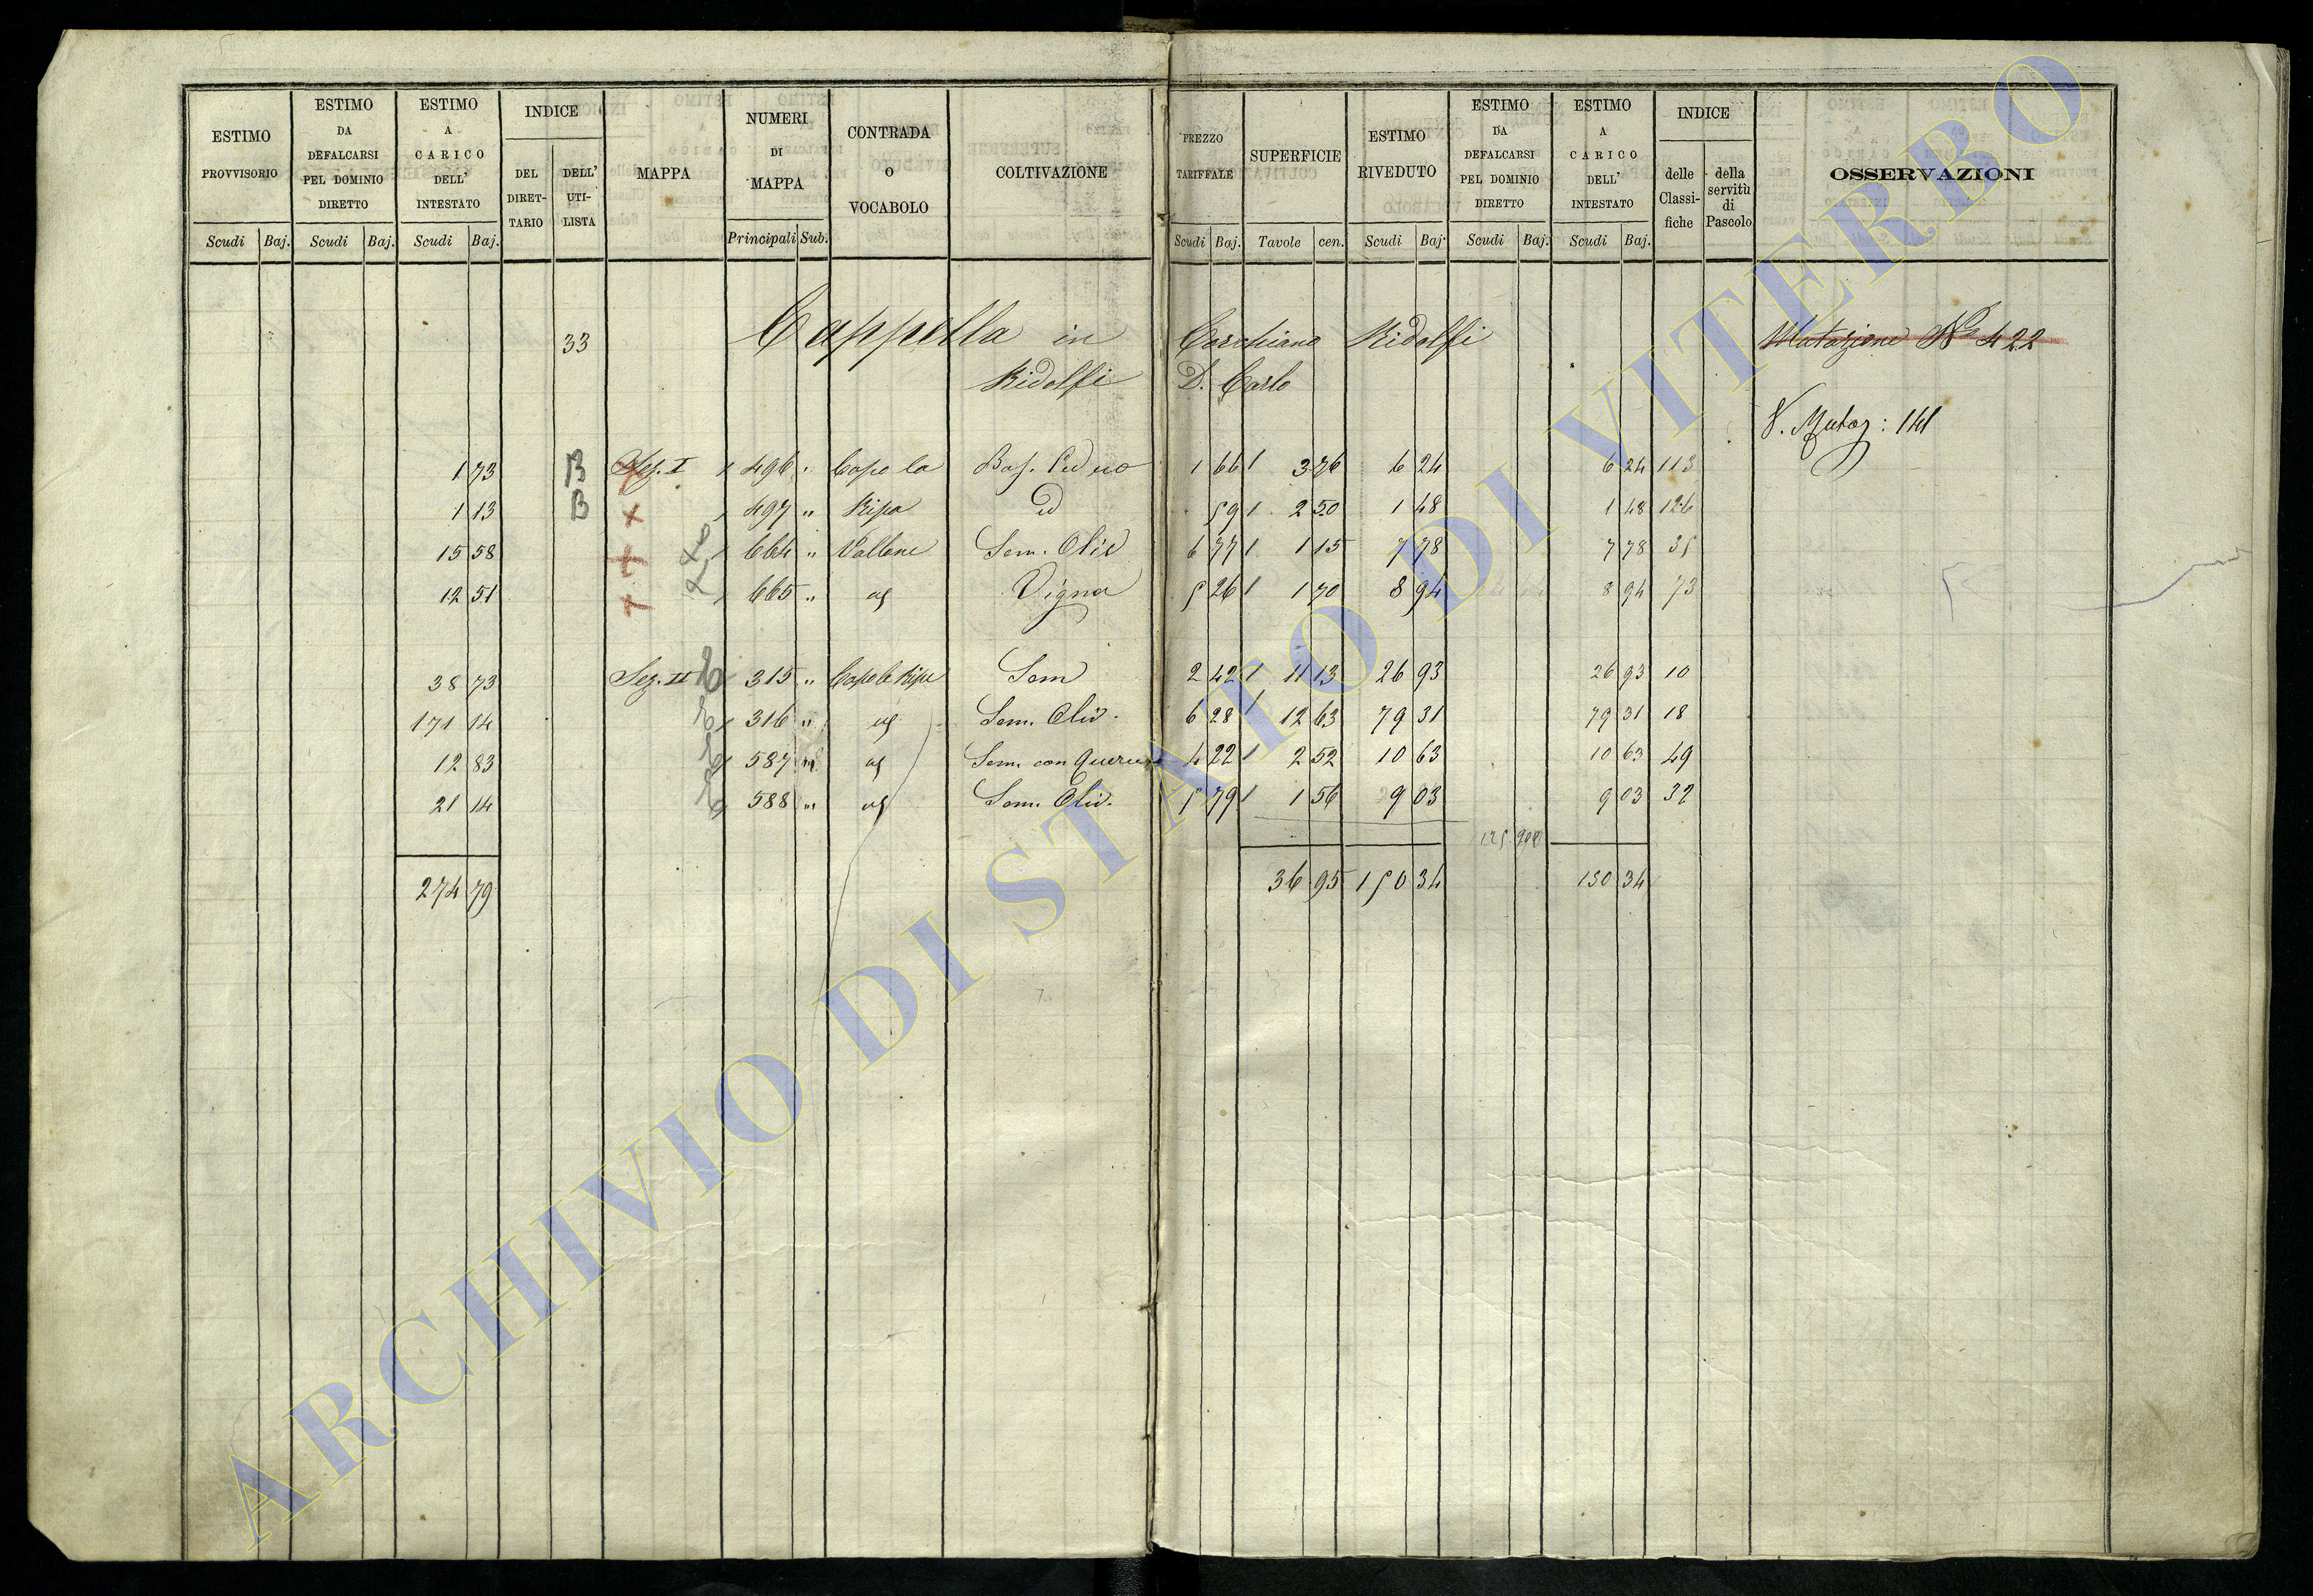 ESTIMO PROVVISORIO Scudi Baj.
ESTIMO DA DEFALCARSI PEL DOMINIO DIRETTO Scudi Baj.
ESTIMO A CARICO DELL' INTESTATO Scudi Baj.
INDICE DEL DIRET- TARIO DELL' UTI- LISTA
MAPPA
NUMERI DI MAPPA Principali Sub.
CONTRADA O VOCABOLO
COLTIVAZIONE
PREZZO TARIFFALE Scudi Baj.
SUPERFICIE Tavole cen.
ESTIMO RIVEDUTO Scudi Baj.
ESTIMO DA DEFALCARSI PEL DOMINIO DIRETTO Scudi Baj.
ESTIMO A CARICO DELL' INTESTATO Scudi Baj.
INDICE delle Classi- fiche della servitù di Pascolo
OSSERVAZIONI
33 Cappella in Corchiano Ridolfi Mutazione Nº 422
Ridolfi D. Carlo
V. Mutaz: 141
1 73 B Sez. I 496 " Capo la Bos. Ceduo 1 66 3 76 6 24 6 24 113
1 13 B 497 " Ripa 59 2 50 1 48 1 48 126
15 58 664 " Vallone Sem. Oliv 6 77 1 15 7 78 7 78 35
12 51 665 " Vigna 5 26 1 70 8 94 8 94 73
38 73 Sez. II 315 " Capo le Ripe Sem 2 42 11 13 26 93 26 93 10
171 14 316 " Sem. Oliv. 6 28 12 63 79 31 79 31 18
12 83 587 " Sem. con Querce 4 22 2 52 10 63 10 63 49
21 14 588 " Sem. Oliv. 5 79 1 56 9 03 9 03 32
274 79 36 95 150 34 150 34
ARCHIVIO DI STATO DI VITERBO